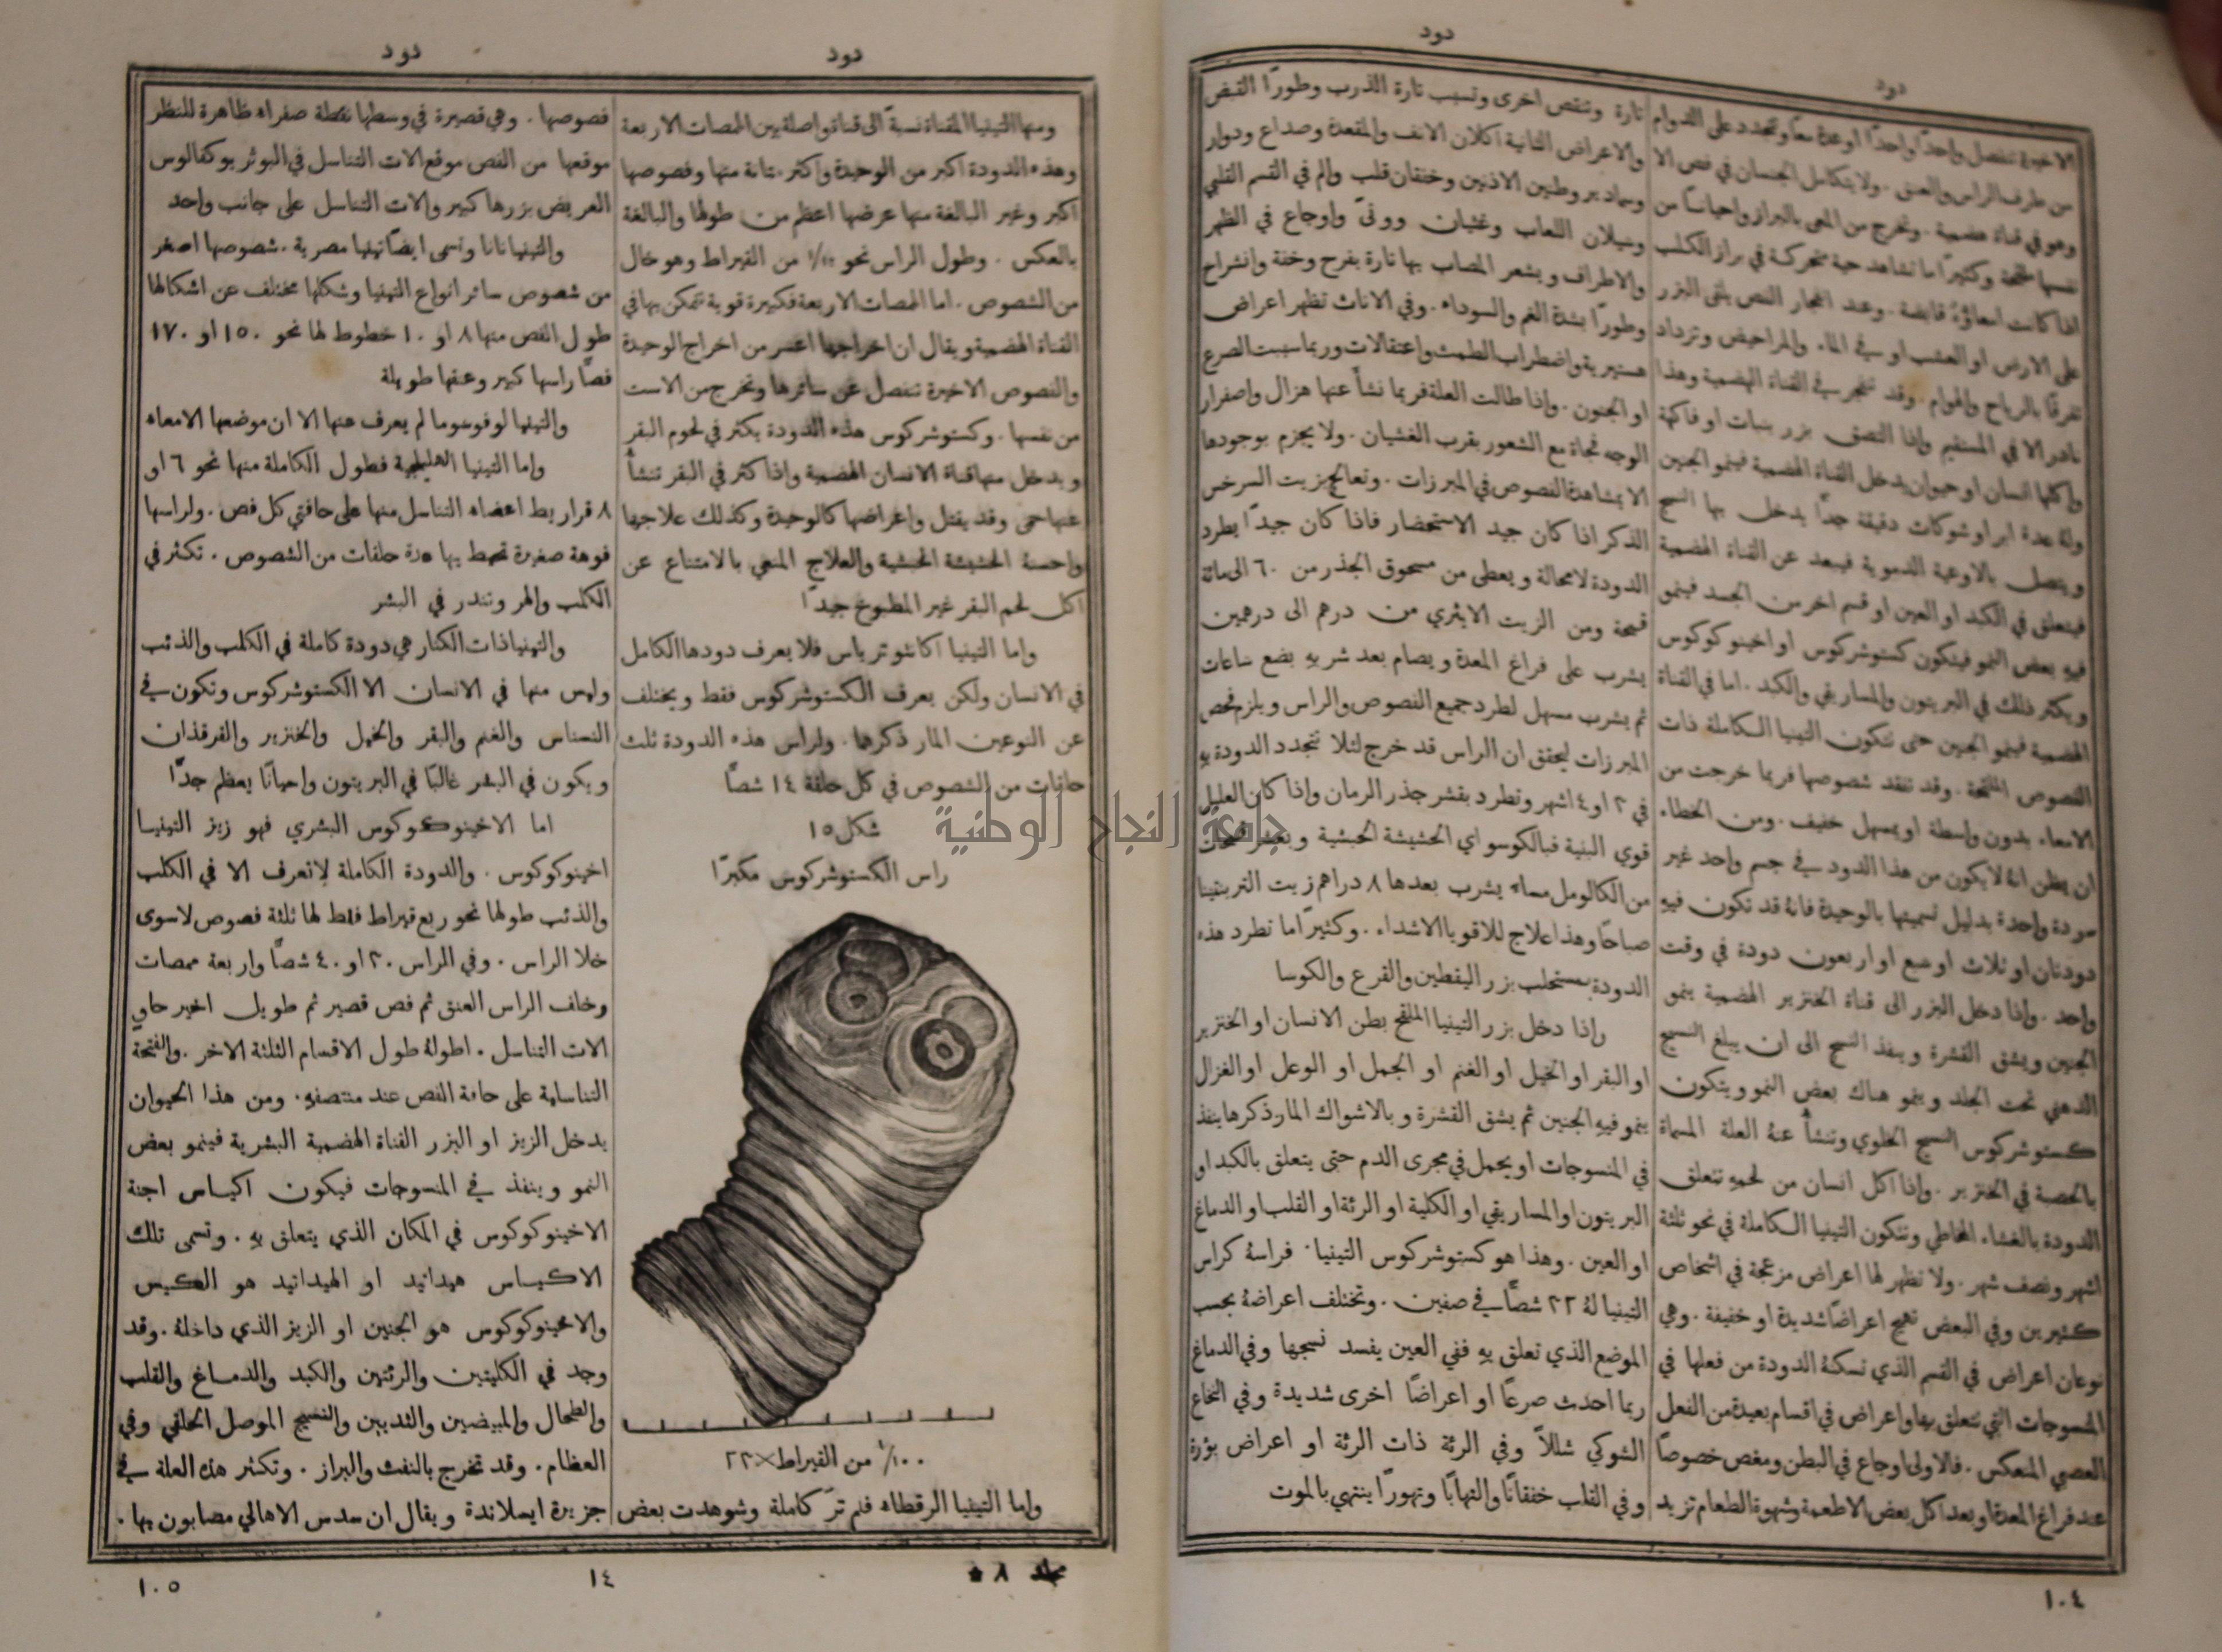 دود
دود
الاخيرة تنفصل واحدًا واحدًا او عدة معًا وتتجدد على الدوام
من طرف الراس والعنق . ولا يتكامل الجسان في فص الا
وهو في قناة هضمية . وتخرج من المعي بالبراز واحيانًا من
نفسها ملتحمة وكثيرًا ما تشاهد حية متحركة في براز الكلب
اذا كانت امعاؤهُ قابضة . وعند انفجار الفص يلقى البزر
على الارض او العشب او في الماء والمراحيض وتزداد
تفرقًا بالرياح والهوام . وقد تنفجر في القناة الهضمية وهذا
نادر الا في المستقيم واذا التصق بزر بنبات او فاكهة
واكلها انسان او حيوان يدخل القناة الهضمية فينمو الجنين
ولهُ عدة ابر او شوكات دقيقة جدًّا يدخل بها النسيج
ويتصل بالاوعية الدموية فيبعد عن القناة الهضمية
فيتعلق في الكبد او العين او قسم اخر من الجسد فينمو
فيهِ بعض النمو فيتكون كستوشركوس او اخينوكوكوس
ويكثر ذلك في البريتون والمساريقي والكبد . اما في القناة
الهضمية فينمو الجنين حتى تتكون التينيا الكاملة ذات
الفصوص الملتحمة . وقد تفقد شصوصها فربما خرجت من
الامعاء بدون واسطة او بمسهل خفيف . ومن الخطاء
ان يظن انهُ لا يكون من هذا الدود في جسم واحد غير
دودة واحدة بدليل تسميتها بالوحيدة فانهُ قد تكون فيهِ
دودتان او ثلاث او سبع او اربعون دودة في وقت
واحد . واذا دخل البزر الى قناة الخنزير الهضمية ينمو
الجنين ويشق القشرة وينفذ النسيج الى ان يبلغ النسيج
الدهني تحت الجلد وينمو هناك بعض النمو ويتكون
كستوشركوس النسيج الخلوي وتنشأ عنهُ العلة المسماة
بالحصبة في الخنزير . واذا اكل انسان من لحمهِ تتعلق
الدودة بالغشاء المخاطي وتتكون التينيا الكاملة في نحو ثلثة
اشهر ونصف شهر . ولا تظهر لها اعراض مزعجة في اشخاص
كثيرين وفي البعض تهيج اعراضًا شديدة او خفيفة . وهي
نوعان اعراض في القسم الذي تسكنهُ الدودة من فعلها في
المنسوجات التي تتعلق بها واعراض في اقسام بعيدة من الفعل
العصبي المنعكس . فالاولى اوجاع في البطن ومغص خصوصًا
عند فراغ المعدة او بعد اكل بعض الاطعمة وشهوة الطعام تزيد
تارة وتنقص اخرى وتسبب تارة الذرب وطورًا القبض
والاعراض الثانية اكلان الانف والمقعدة وصداع ودوار
وسمادير وطنين الاذنين وخفقان قلب والم في القسم القلبي
وسيلان اللعاب وغثيان وونىً واوجاع في الظهر
والاطراف ويشعر المصاب بها تارة بفرح وخفة وانشراح
وطورًا بشدة الغم والسوداء . وفي الاناث تظهر اعراض
هستيرية واضطراب الطمث واعتقالات وربما سببت الصرع
او الجنون . واذا طالت العلة فربما نشأ عنها هزال واصفرار
الوجه فجاة مع الشعور بقرب الغشيان . ولا يجزم بوجودها
الا بمشاهدة الفصوص في المبرزات . وتعالج بزيت السرخس
الذكر اذا كان جيد الاستحضار فاذا كان جيدًا يطرد
الدودة لا محالة ويعطى من مسحوق الجذر من ٦٠ الى مائة
قمحة ومن الزيت الايثري من درهم الى درهمين
يشرب على فراغ المعدة ويصام بعد شربهِ بضع ساعات
ثم يشرب مسهل لطرد جميع الفصوص والراس ويلزم فحص
المبرزات ليحقق ان الراس قد خرج لئلا تتجدد الدودة بهِ
في ٢ او ٤ اشهر وتطرد بقشر جذر الرمان واذا كان العليل
قوي البنية فبالكوسو اي الحشيشة الحبشية وبعشر قمحات
من الكالومل مساء يشرب بعدها ٨ دراهم زيت التربنتينا
صباحًا وهذا علاج للاقوياء الاشداء . وكثيرًا ما تطرد هذه
الدودة بمستحلب بزر اليقطين والقرع والكوسا
واذا دخل بزر التينيا الملقح بطن الانسان او الخنزير
او البقر او الخيل او الغنم او الجمل او الوعل او الغزال
ينمو فيهِ الجنين ثم يشق القشرة وبالاشواك المار ذكرها ينفذ
في المنسوجات او يحمل في مجرى الدم حتى يتعلق بالكبد او
البريتون او المساريقي او الكلية او الرئة او القلب او الدماغ
او العين . وهذا هو كستوشركوس التينيا . فراسهُ كراس
التينيا لهُ ٢٢ شصًّا في صفين . وتختلف اعراضهُ بحسب
الموضع الذي تعلق بهِ ففي العين يفسد نسيجها وفي الدماغ
ربما احدث صرعًا او اعراضًا اخرى شديدة وفي النخاع
الشوكي شللًا وفي الرئة ذات الرئة او اعراض بؤرة
وفي القلب خفقانًا والتهابًا وتهورًا ينتهي بالموت
١٠٤
دود
دود
ومنها التينيا المقناة نسبةً الى قناة واصلة بين الممصات الاربعة
وهذه الدودة اكبر من الوحيدة واكثر متانة منها وفصوصها
اكبر وغير البالغة منها عرضها اعظم من طولها والبالغة
بالعكس . وطول الراس نحو من القيراط وهو خال
من الشصوص . اما الممصات الاربعة فكبيرة قوية تتمكن بها في
القناة الهضمية ويقال ان اخراجها اعسر من اخراج الوحيدة
والفصوص الاخيرة تنفصل عن سائرها وتخرج من الاست
من نفسها . وكستوشركوس هذه الدودة يكثر في لحوم البقر
ويدخل منها قناة الانسان الهضمية واذا كثر في البقر تنشأ
عنها حمى وقد يقتل واعراضها كالوحيدة وكذلك علاجها
واحسنهُ الحشيشة الحبشية والعلاج المنعي بالامتناع عن
اكل لحم البقر غير المطبوخ جيدًا
واما التينيا اكانثوترياس فلا يعرف دودها الكامل
في الانسان ولكن يعرف الكستوشركوس فقط ويختلف
عن النوعين المار ذكرها . ولراس هذه الدودة ثلث
حلقات من الشصوص في كل حلقة ١٤ شصًّا
شكل ١٥
راس الكستوشركوس مكبرًا
١/١٠٠ من القيراط × ٢٢
واما التينيا الرقطاء فلم ترَ كاملة وشوهدت بعض
فصوصها . وهي قصيرة في وسطها نقطة صفراء ظاهرة للنظر
موقعها من الفص موقع الات التناسل في البوثريوكفالوس
العريض بزرها كبير والات التناسل على جانب واحد
والتينيا نانا وتسمى ايضًا تينيا مصرية . شصوصها اصغر
من شصوص سائر انواع التينيا وشكلها مختلف عن اشكالها
طول الفص منها ٨ او ١٠ خطوط لها نحو ١٥٠ او ١٧٠
فصًّا راسها كبير وعنقها طويلة
والتينيا لوفوسوما لم يعرف عنها الا ان موضعها الامعاء
واما التينيا الهليلجية فطول الكاملة منها نحو ٦ او
٨ قراريط اعضاء التناسل منها على حافتي كل فص . ولراسها
فوهة صغيرة تحيط بها عدة حلقات من الشصوص . تكثر في
الكلب والهر وتندر في البشر
والتينيا ذات الكنار هي دودة كاملة في الكلب والذئب
وليس منها في الانسان الا الكستوشركوس وتكون في
النسناس والغنم والبقر والخيل والخنزير والقرقذان
ويكون في البشر غالبًا في البريتون واحيانًا يعظم جدًّا
اما الاخينوكوكوس البشري فهو زيز التينيا
اخينوكوكوس . والدودة الكاملة لا تعرف الا في الكلب
والذئب طولها نحو ربع قيراط فقط لها ثلثة فصوص لا سوى
خلا الراس . وفي الراس ٣٠ او ٤٠ شصًّا واربعة ممصات
وخلف الراس العنق ثم فص قصير ثم طويل اخير حاوٍ
الات التناسل . اطولهُ طول الاقسام الثلثة الاخر . والفتحة
التناسلية على حافة الفص عند منتصفهِ . ومن هذا الحيوان
يدخل الزيز او البزر القناة الهضمية البشرية فينمو بعض
النمو وينفذ في المنسوجات فيكون اكياس اجنة
الاخينوكوكوس في المكان الذي يتعلق بهِ . وتسمى تلك
الاكياس هيداتيد او الهيداتيد هو الكيس
والاخينوكوكوس هو الجنين او الزيز الذي داخلهُ . وقد
وجد في الكليتين والرئتين والكبد والدماغ والقلب
والطحال والمبيضين والثديين والنسيج الموصل الخلقي وفي
العظام . وقد تخرج بالنفث والبراز . وتكثر هذه العلة في
جزيرة ايسلاندة ويقال ان سدس الاهالي مصابون بها .
مجلد ٨
١٤
١٠٥
جامعة النجاح الوطنية